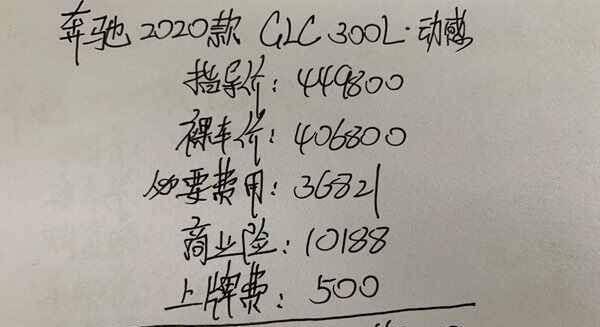 奔驰 2020款 GLC 300L·动感
指导价: 449800
裸车价: 406800
必要费用: 36821
商业险: 10188
上牌费: 500